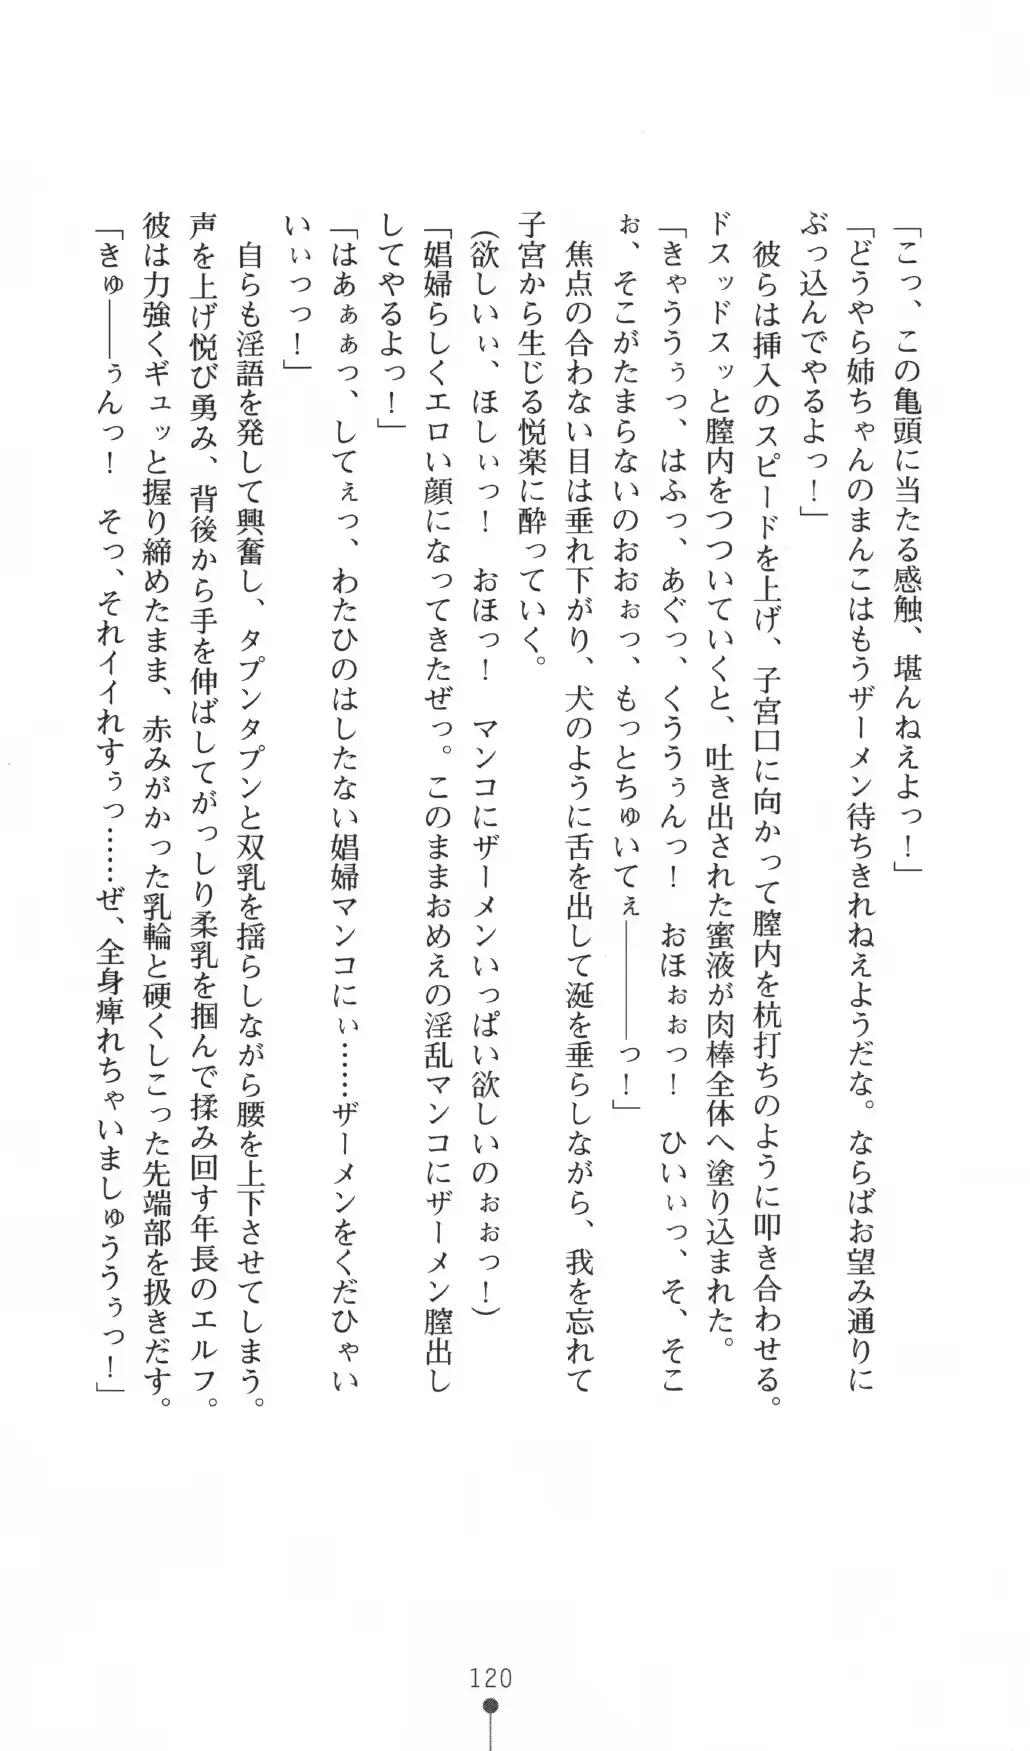 「こっ、この亀頭に当たる感触、堪んねえよっ！」
「どうやら姉ちゃんのまんこはもうザーメン待ちきれねえようだな。ならばお望み通りに
ぶっ込んでやるよっ！」
　彼らは挿入のスピードを上げ、子宮口に向かって膣内を杭打ちのように叩き合わせる。
ドスッドスッと膣内をつついていくと、吐き出された蜜液が肉棒全体へ塗り込まれた。
「きゃううぅっ、はふっ、あぐっ、くううぅんっ！　おほぉぉっ！　ひいぃっ、そ、そこ
ぉ、そこがたまらないのおおぉっ、もっとちゅいてぇ――――っ！」
　焦点の合わない目は垂れ下がり、犬のように舌を出して涎を垂らしながら、我を忘れて
子宮から生じる悦楽に酔っていく。
（欲しいぃ、ほしぃっ！　おほっ！　マンコにザーメンいっぱい欲しいのぉぉっ！）
「娼婦らしくエロい顔になってきたぜっ。このままおめえの淫乱マンコにザーメン膣出し
してやるよっ！」
「はあぁぁっ、してぇっ、わたひのはしたない娼婦マンコにぃ……ザーメンをくだひゃい
いぃっっ！」
　自らも淫語を発して興奮し、タプンタプンと双乳を揺らしながら腰を上下させてしまう。
声を上げ悦び勇み、背後から手を伸ばしてがっしり柔乳を掴んで揉み回す年長のエルフ。
彼は力強くギュッと握り締めたまま、赤みがかった乳輪と硬くしこった先端部を扱きだす。
「きゅ――ぅんっ！　そっ、それイイれすぅっ……ぜ、全身痺れちゃいましゅううぅっ！」
120